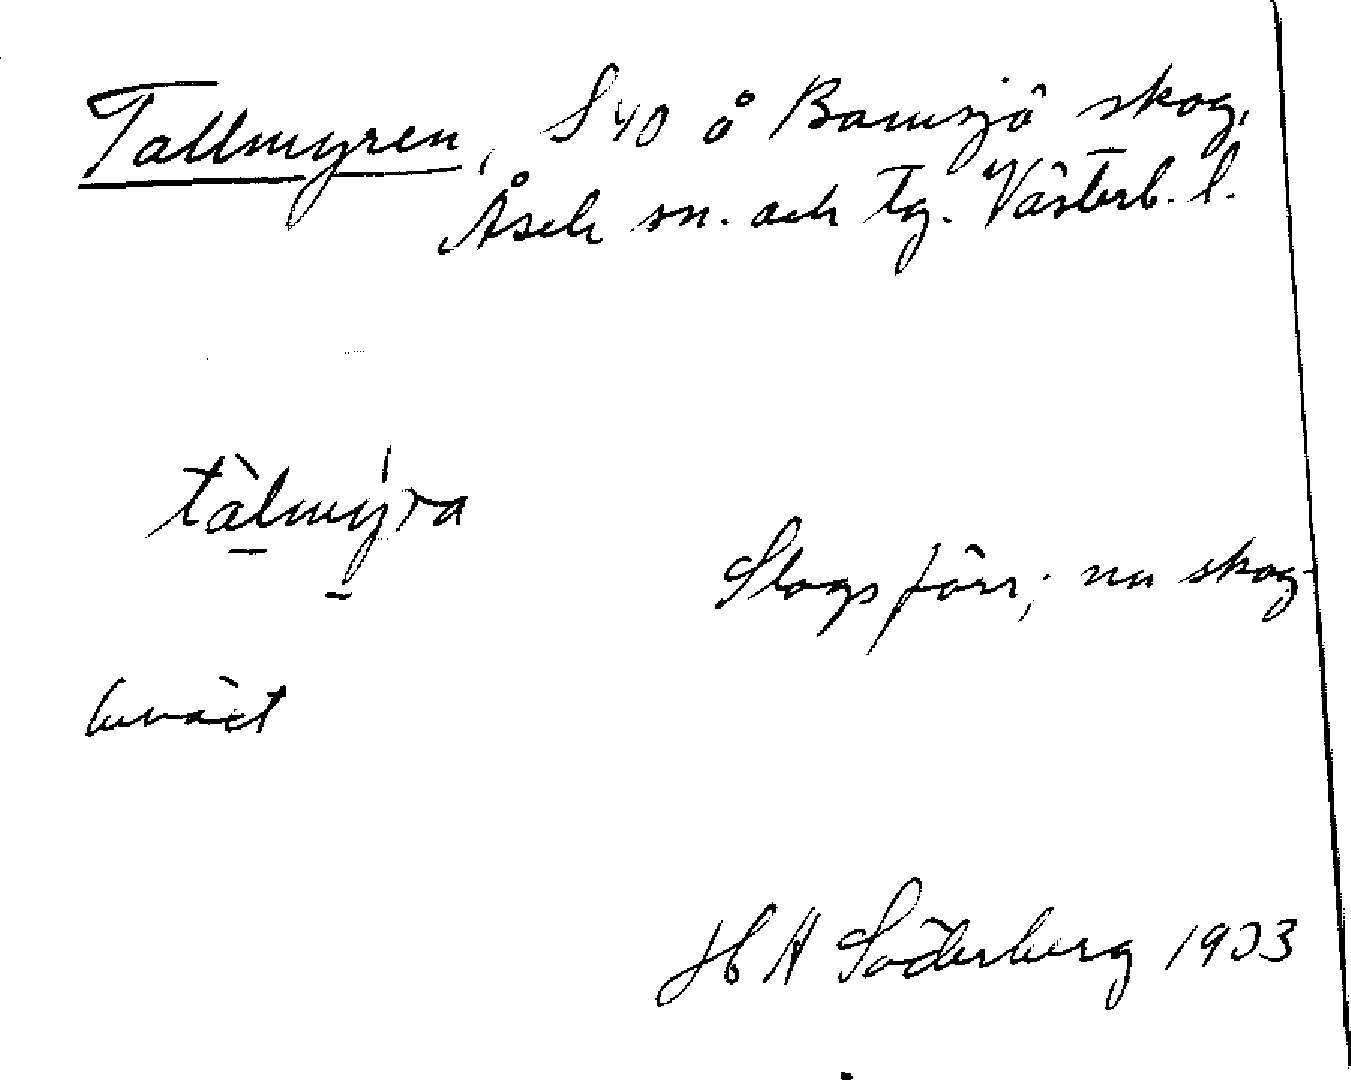 Tallmyren, S40 å Bomsjö skog,
Åsele sn. och tg. Västerb. l.
tàlmýra
Slogs förr; nu skog-
bevàxt
H A Söderberg 1933